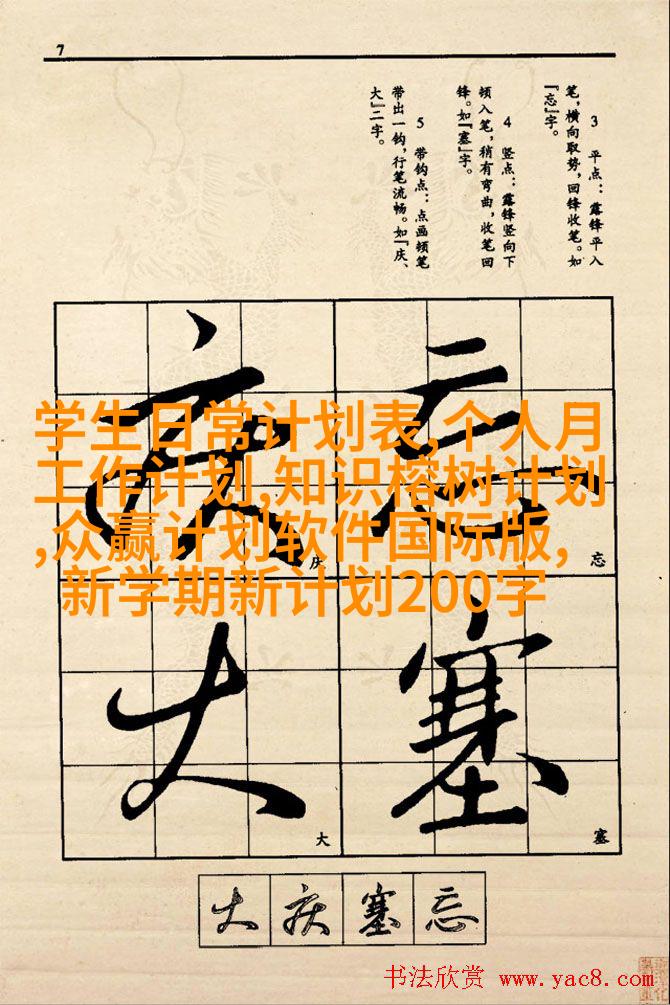 7
3 平点：露锋平入
笔，横向取势，回锋收笔。如
『忘』字。
4 竖点：露锋竖向下
顿入笔，稍有弯曲，收笔回
锋。如『塞』字。
5 带钩点：点画顿笔
带出一钩，行笔流畅。如『庆、
大』二字。
学生日常计划表,个人月
工作计划,知识榕树计划
,众赢计划软件国际版,
新学期新计划200字
庆 忘
庆 忘
大 塞
大 塞
大 庆 塞 忘
书法欣赏 www.yac8.com